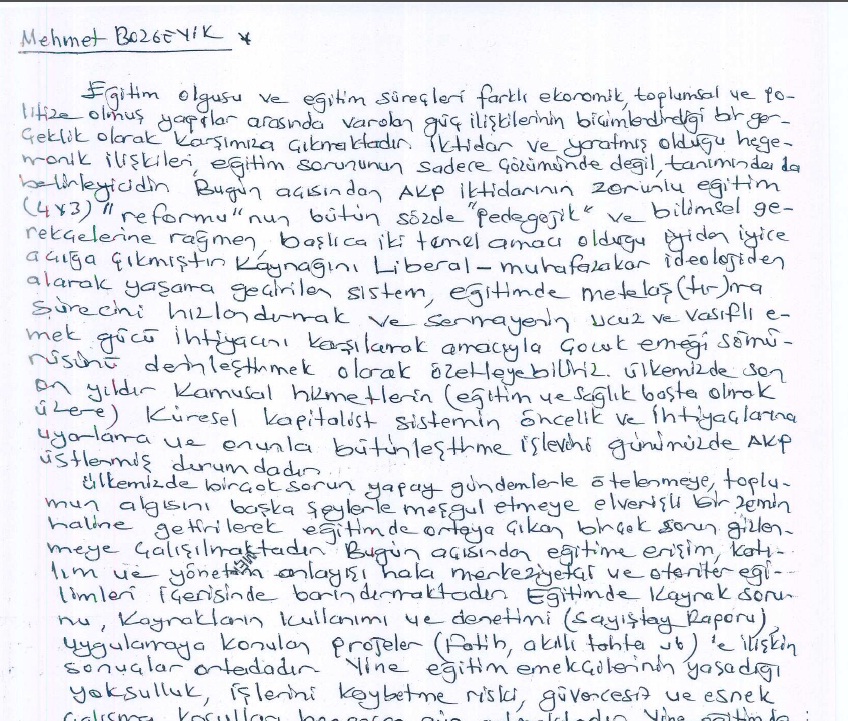 Mehmet BOZGEYİK *
Eğitim olgusu ve eğitim süreçleri farklı ekonomik, toplumsal ve po-
litize olmuş yapılar arasında varolan güç ilişkilerinin biçimlendirdiği bir ger-
çeklik olarak karşımıza çıkmaktadır. İktidar ve yaratmış olduğu hege-
monik ilişkileri, eğitim sorununun sadece çözümünde değil, tanımında da
belirleyicidir. Bugün açısından AKP iktidarının zorunlu eğitim
(4x3) "reformu"nun bütün sözde "pedegojik" ve bilimsel ge-
rekçelerine rağmen, başlıca iki temel amacı olduğu iyiden iyice
açığa çıkmıştır. Kaynağını Liberal-muhafazakar ideolojiden
alarak yaşama geçirilen sistem, eğitimde metalaş(tır)ma
sürecini hızlandırmak ve sermayenin ucuz ve vasıflı e-
mek gücü ihtiyacını karşılamak amacıyla çocuk emeği sömü-
rüsünü derinleştirmek olarak özetleyebiliriz. Ülkemizde son
on yıldır kamusal hizmetlerin (eğitim ve sağlık başta olmak
üzere) Küresel kapitalist sistemin öncelik ve ihtiyaçlarına
uyarlama ve onunla bütünleştirme işlevini günümüzde AKP
üstlenmiş durumdadır.
Ülkemizde birçok sorun yapay gündemlerle ötelenmeye, toplu-
mun algısını başka şeylerle meşgul etmeye elverişli bir zemin
haline getirilerek eğitimde ortaya çıkan birçok sorun gizlen-
meye çalışılmaktadır. Bugün açısından eğitime erişim, katı-
lım ve yönetim anlayışı hala merkeziyetçi ve otoriter eği-
limleri içerisinde barındırmaktadır. Eğitimde Kaynak soru-
nu, Kaynakların kullanımı ve denetimi (Sayıştay Raporu),
uygulamaya konulan projeler (Fatih, akıllı tahta vb) 'e ilişkin
sonuçlar ortadadır. Yine eğitim emekçilerinin yaşadığı
yoksulluk, işlerini kaybetme riski, güvencesiz ve esnek